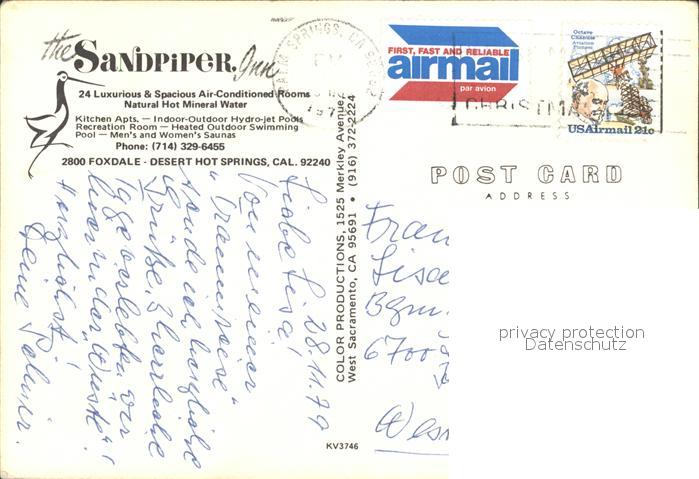 the SANDPIPER Inn
24 Luxurious & Spacious Air-Conditioned Rooms
Natural Hot Mineral Water
Kitchen Apts. — Indoor-Outdoor Hydro-jet Pools
Recreation Room — Heated Outdoor Swimming
Pool — Men's and Women's Saunas
Phone: (714) 329-6455
2800 FOXDALE - DESERT HOT SPRINGS, CAL. 92240
28.11.79
Liebe Lisa!
Von meiner
"Traumreise"
sende ich herzliche
Grüße.
hier in der "Wüste"!
Herzlichst!
Deine
COLOR PRODUCTIONS, 1525 Merkley Avenue
West Sacramento, CA 95691 • (916) 372-2224
KV3746
PALM SPRINGS, CA
PM
197
FIRST, FAST AND RELIABLE
airmail
par avion
CHRISTMA
Octave
Chanute
Aviation
Pioneer
USAirmail 21c
POST CARD
ADDRESS
Frau
Lisa
Bgm.
6700
Wes
privacy protection
Datenschutz